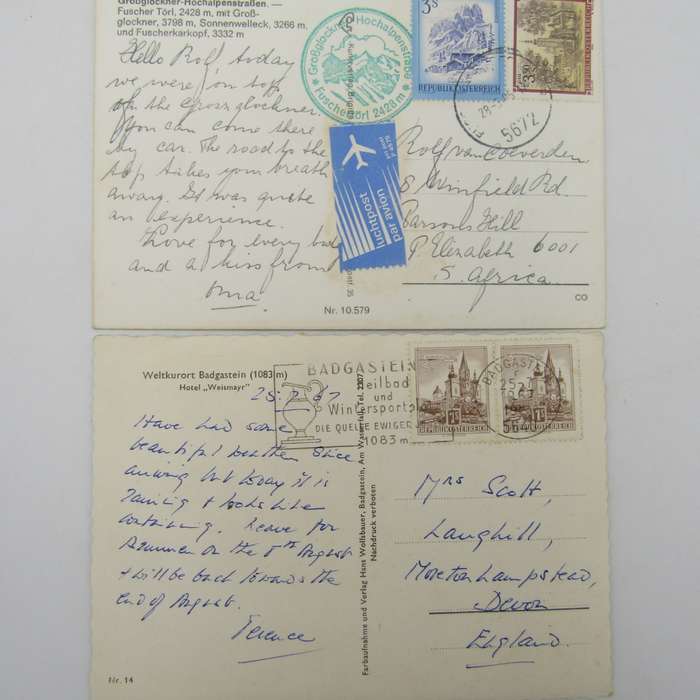 Großglockner-Hochalpenstraßen. —
Fuscher Törl, 2428 m, mit Groß-
glockner, 3798 m, Sonnenwelleck, 3266 m,
und Fuscherkarkopf, 3332 m
Hello Rolf, today
we were on top
of the Grossglockner.
You can come there
by car. The road to the
top takes your breath
away. It was quite
an experience.
Love for every body
and a kiss from
Oma
Großglockner-Hochalpenstraße
Fuschertörl 2428 m
3S
REPUBLIK ÖSTERREICH
5672
luchtpost
par avion
Rolf van Coeverden
8 Winfield Rd.
Parsons Hill
P. Elizabeth 6001
S. Africa
Nr. 10.579
CO
Weltkurort Badgastein (1083 m)
Hotel „Weismayr"
25.7.67
BADGASTEIN
Heilbad
und
Wintersportpl
DIE QUELLE EWIGER
1083 m
BADGASTEIN
25.-7.
5640
REPUBLIK ÖSTERREICH
REPUBLIK ÖSTERREICH
Have had some
beautiful weather since
arriving but today it is
raining & looks like
continuing. Leave for
on the 5th August
& will be back towards the
end of August.
Terence
Farbaufnahme und Verlag Hans Wolfsbauer, Badgastein, Am Wasserfall, Tel. 2207
Nachdruck verboten
Mrs Scott,
Langhill,
Moretonhampstead,
Devon
England.
Nr. 14